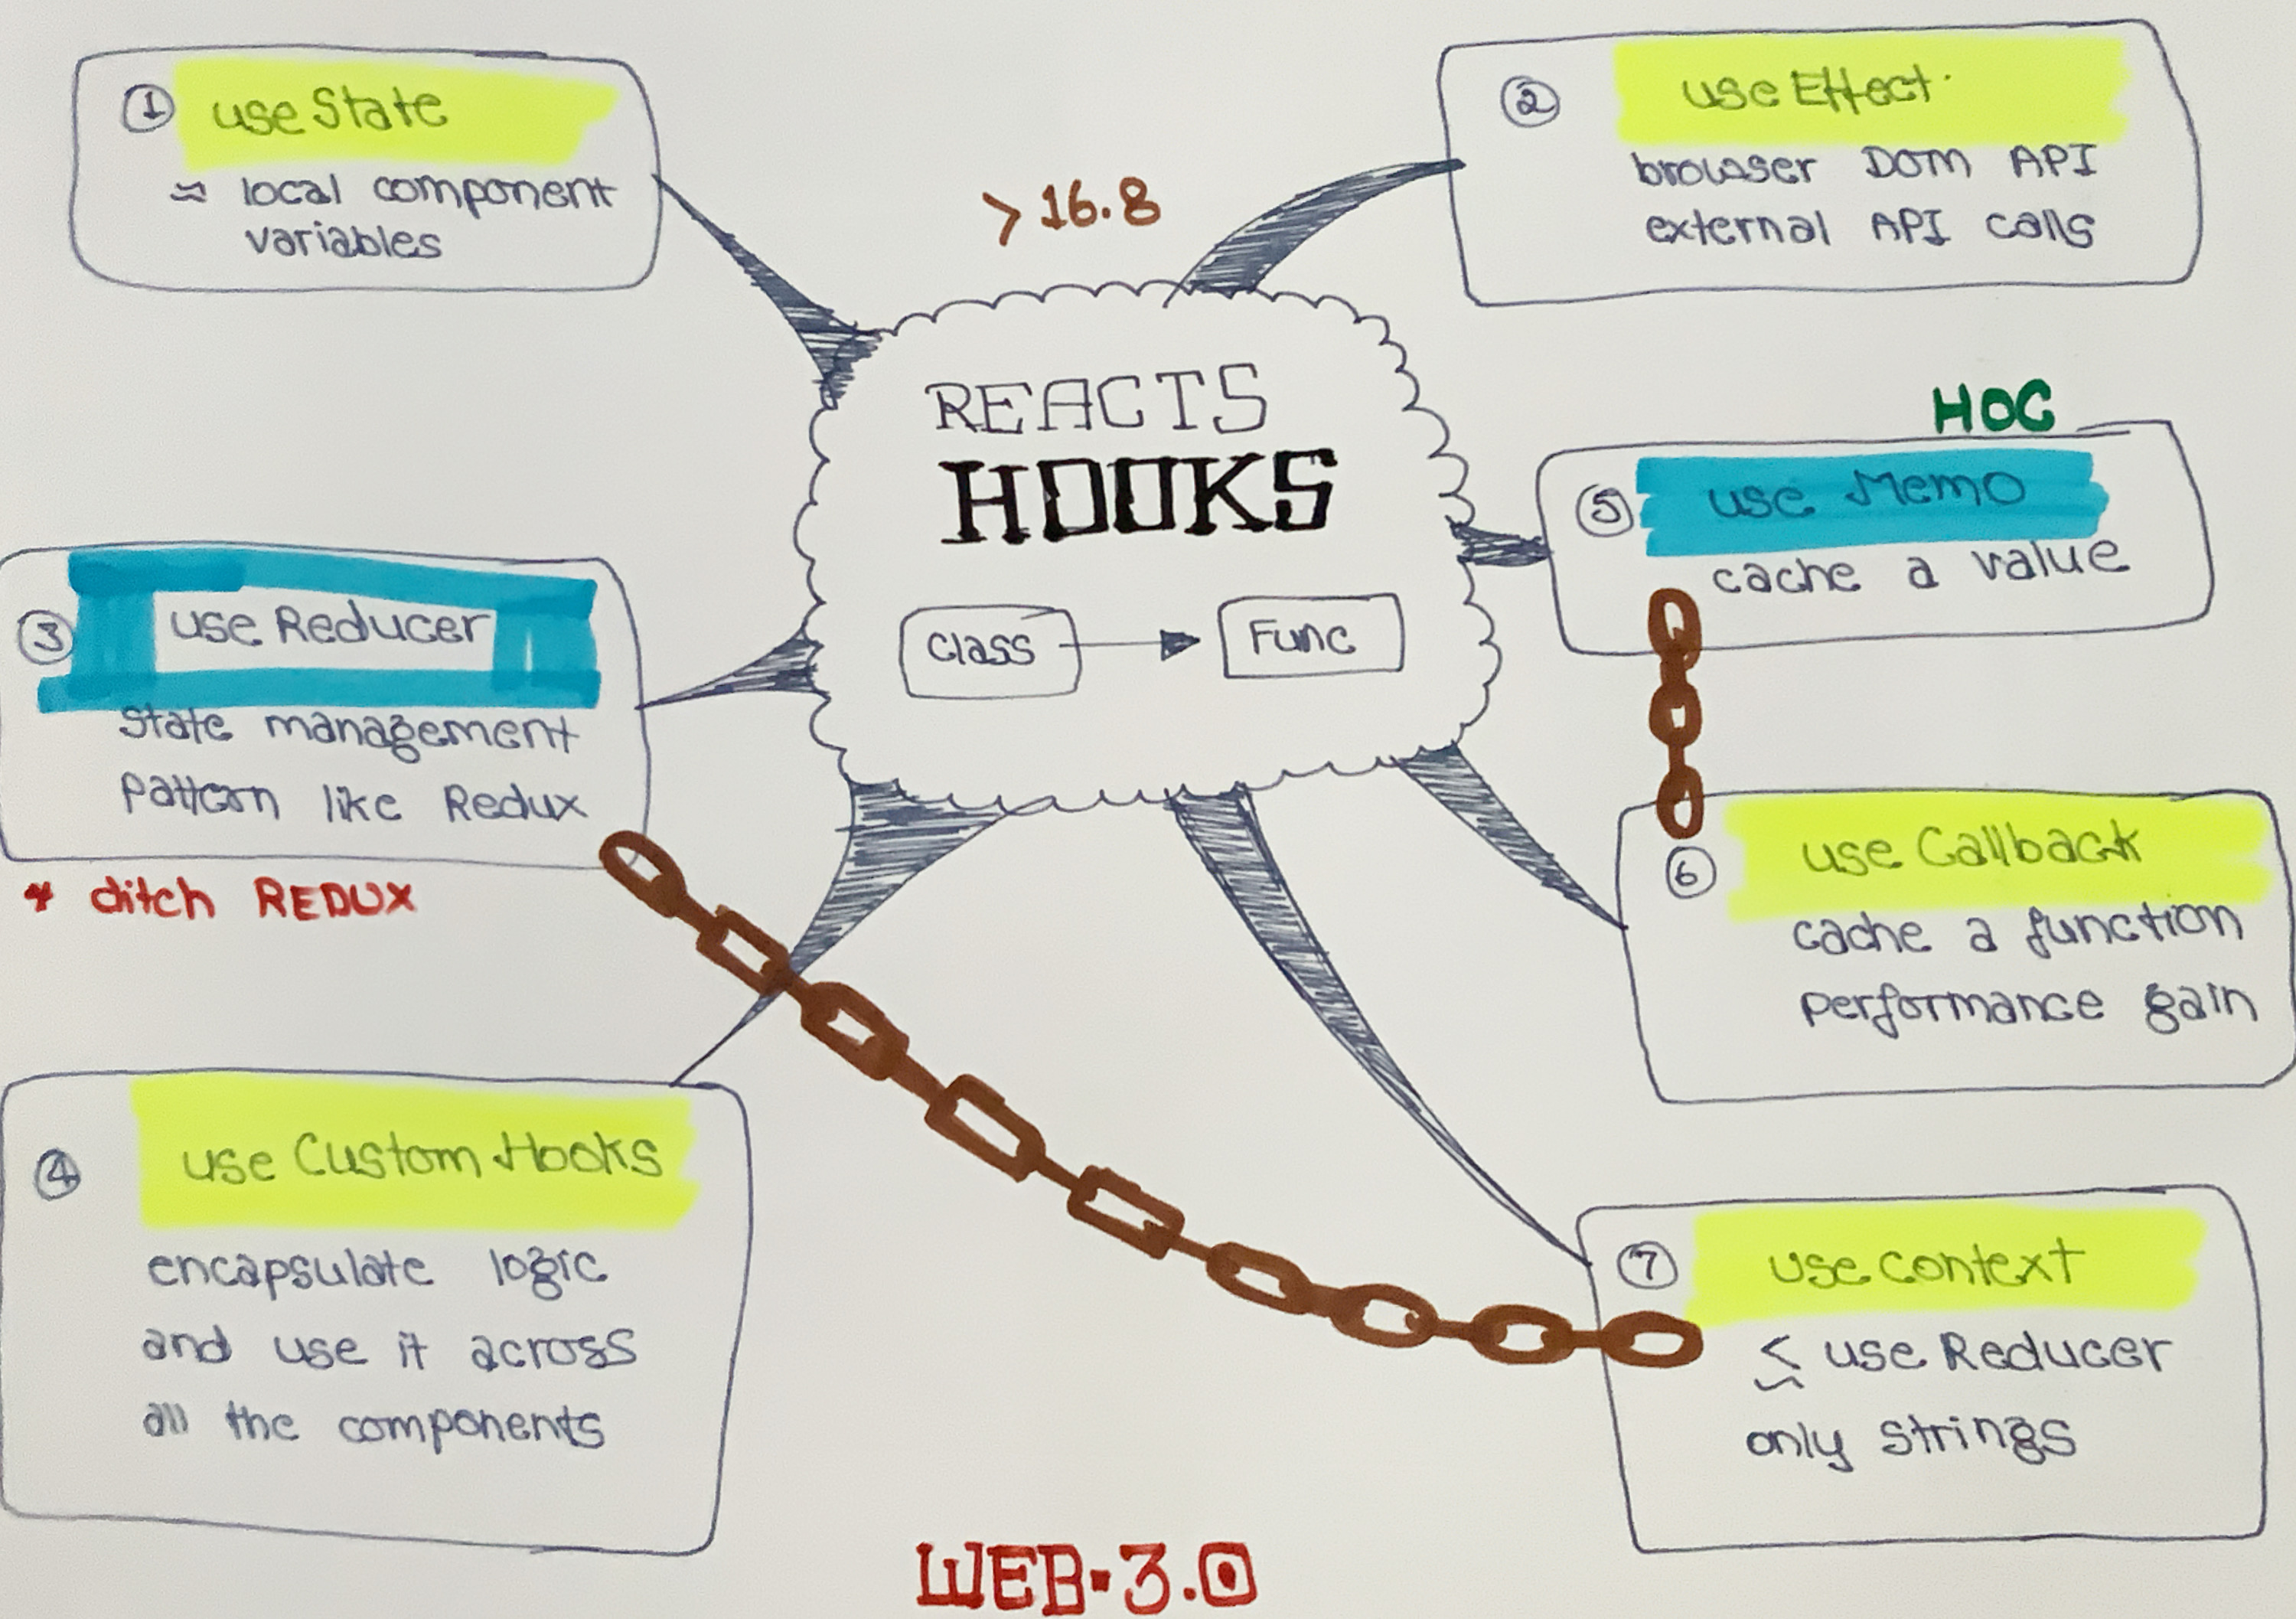 ① use State
≈ local component
variables
> 16.8
② use Effect
browser DOM API
external API calls
REACTS
HOOKS
Class → Func
③ use Reducer
State management
Pattern like Redux
* ditch REDUX
④ use Custom Hooks
encapsulate logic
and use it across
all the components
HOC
⑤ use Memo
cache a value
⑥ use Callback
cache a function
performance gain
⑦ use context
≤ use Reducer
only strings
WEB-3.0